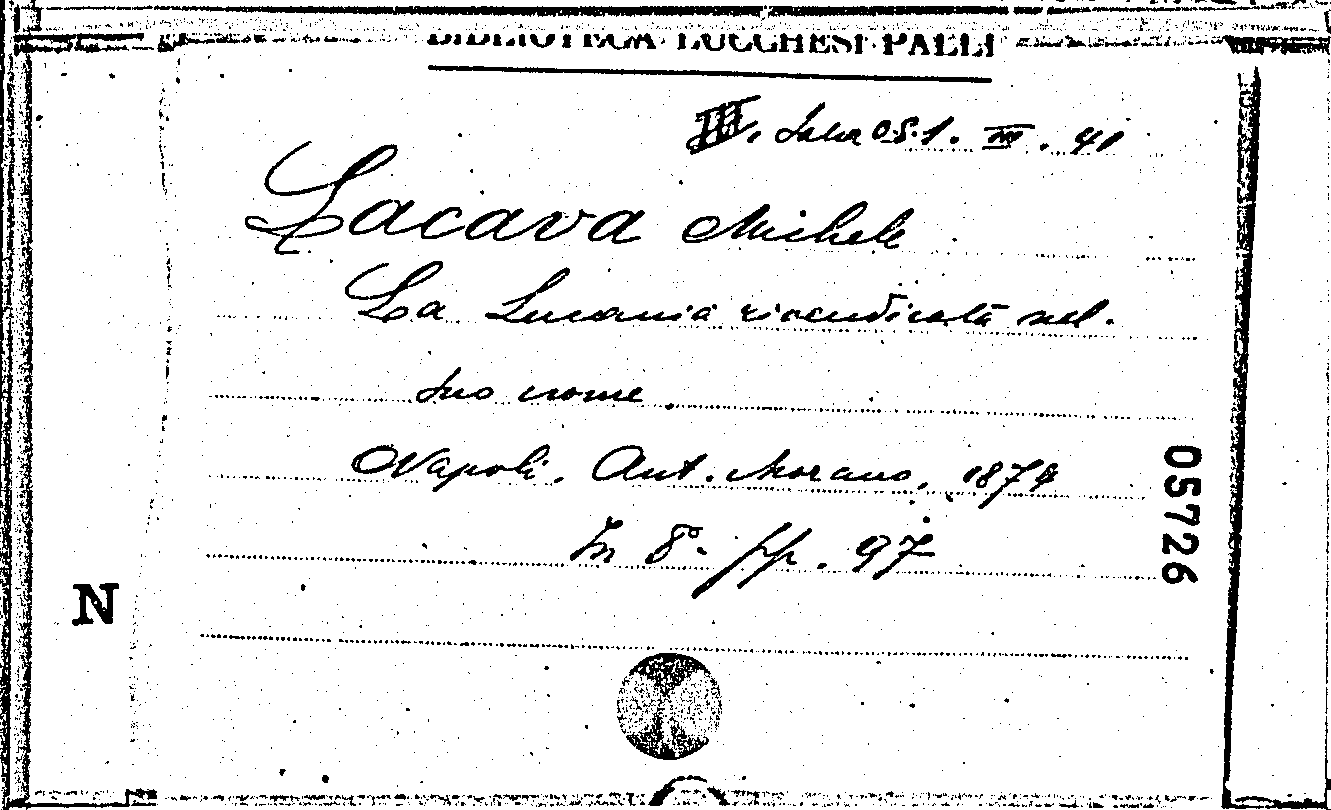 BIBLIOTECA LUCCHESI-PALLI
III. 41
Lacava Michele
La Lucania rivendicata nel
suo nome
Napoli. Ant. Morano, 1874
In 8° pp. 97
05726
N